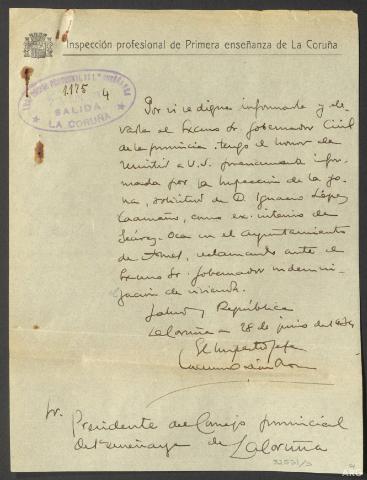 Inspección profesional de Primera enseñanza de La Coruña
INSPECCIÓN PROFESIONAL DE 1ª ENSEÑANZA
1.175
4
SALIDA
LA CORUÑA
Por si se digna informarla y ele-
varla al Excmo Sr. Gobernador Civil
de la provincia tengo el honor de
remitir a V.S. infor-
mada por la Inspección de la zo-
na, solicitud de D. Ignacio López
Caamaño, como ex-interino de
Suárez-Oca en el Ayuntamiento
de Ames, reclamando ante el
Excmo Sr. Gobernador indemni-
zación de vivienda.
Salud y República
La Coruña 28 de junio de 1934
El Inspector Jefe
Sr. Presidente del Consejo provincial
de 1ª enseñanza de La Coruña